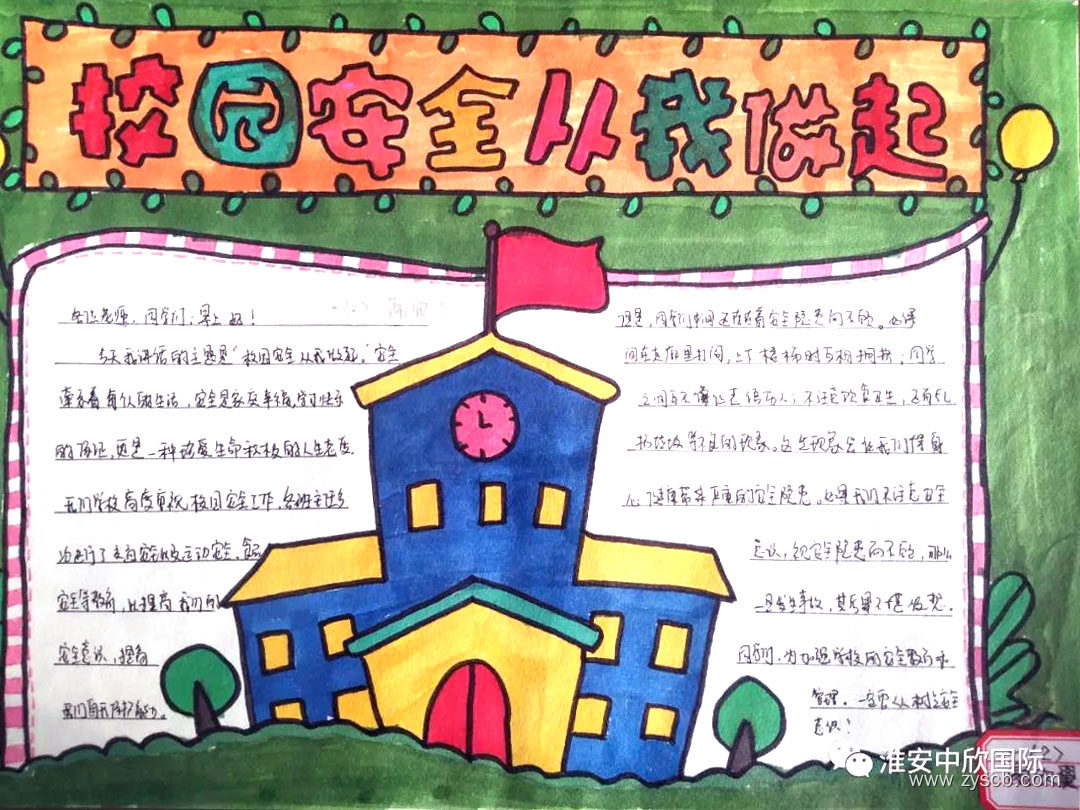 校园安全从我做起
各位老师、同学们:早上好!
今天我讲话的主题是"校园安全从我做起。"安全
牵系着每个人的生活,安全是家庭幸福、学习快乐
的保证,更是一种珍爱生命积极的人生态度。
我们学校高度重视校园安全工作,各班主任多
次进行了交通安全以及运动安全、食品
安全等教育,以提高我们的
安全意识,提高
我们自我保护能力。
但是,同学们中间还存在着安全隐患问题的。如课
间在走廊里打闹,上下楼梯时互相拥挤;同学
之间互不谦让恶语伤人;不注意饮食卫生,还有乱
扔垃圾等不良的现象。这些现象会让我们得身
心健康带来严重的安全隐患。如果我们不注意安全
意识,视安全隐患而不顾,那么
一旦发生事故,其后果不堪设想。
同学们,为加强学校的安全教育和
管理,一定要从树立安全
意识!
淮安中欣国际
www.zyscb.com